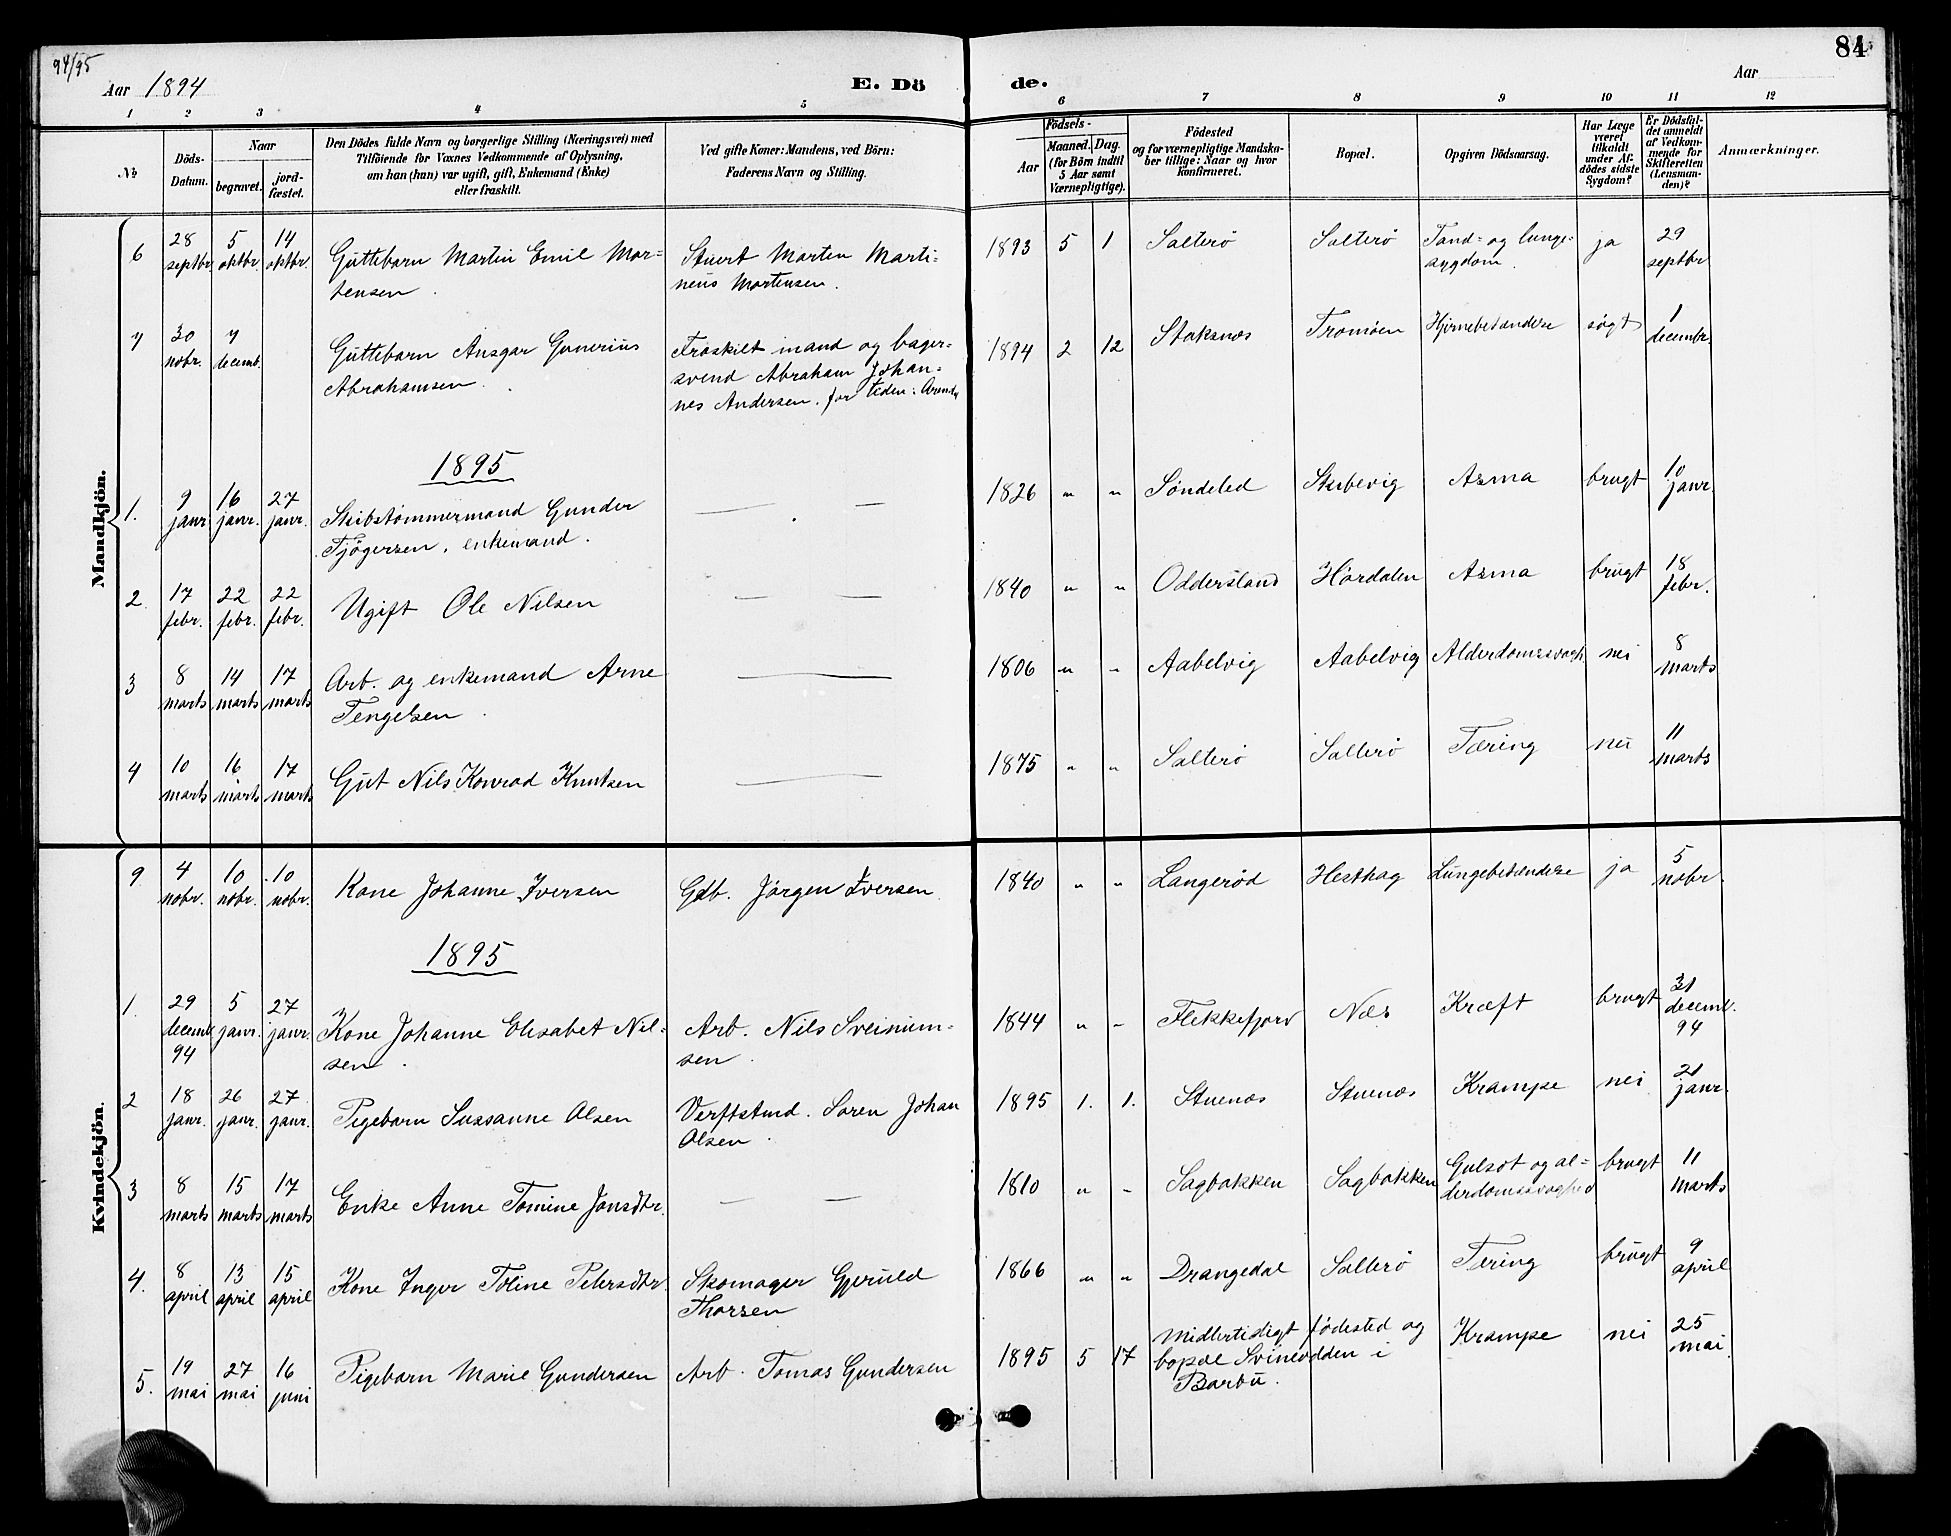 94/95
84
Aar 1894
E. Dö
de.
Aar
1 2 3 4 5 6 7 8 9 10 11 12
No
Döds-Datum.
Naar
begravet.
jordfæstet.
Den Dödes fulde Navn og borgerlige Stilling (Næringsvei) med
Tilföiende for Voxnes Vedkommende af Oplysning,
om han (hun) var ugift, gift, Enkemand (Enke)
eller fraskilt.
Ved gifte Koner: Mandens, ved Börn:
Faderens Navn og Stilling.
Födsels-
Aar
Maaned. Dag.
(for Börn indtil
5 Aar samt
Værnepligtige).
Födested
og for værnepligtige Mandskaber tillige: Naar og hvor
konfirmeret.
Bopæl.
Opgiven Dödsaarsag.
Har Læge
været
tilkaldt
under Afdödes sidste
Sygdom?
Er Dödsfaldet anmeldt
af Vedkommende for
Skifteretten
(Lensmanden)?
Anmærkninger.
Mandkjön.
6 28 septbr. 5 oktbr. 14 oktbr. Guttebarn Martin Emil Mor=
tensen. Stuert Morten Marti=
neus Mortensen. 1893 5 1 Salterö Salterö Tand= og lunge=
sygdom. ja 29 septbr
7 30 nobr. 7 decemb. Guttebarn Ansgar Gunerius
Abrahamsen. Fraskilt mand og bager=
svend Abraham Johan=
nes Andersen. for tiden: Arendal 1894 2 12 Staksnæs Tromöen Hjernebetændelse søgt 1 decembr.
1895
1. 9 janr. 16 janr. 27 janr. Skibstømmermand Gunder
Tjögersen, enkemand. — — 1826 " " Søndeled Skubevig Asma brugt 10 janr.
2. 17 febr. 22 febr. 22 febr. Ugift Ole Nilsen — — 1840 " " Oddersland Hørdalen Asma brugt 18 febr.
3 8 marts 14 marts 17 marts Arb. og enkemand Arne
Tengelsen. — 1806 " " Aabelvig Aabelvig Alderdomssvagh. nei 8 marts
4 10 marts 16 marts 17 marts Gut Nils Konrad Knutsen — 1875 " " Salterö Salterö Tæring nei 11 marts
Kvindekjön.
9 4 nobr. 10 nobr. 10 nobr. Kone Johanne Iversen Gdb. Jörgen Iversen. 1840 " " Langerød Hesthag Lungebetændelse ja 5 nobr.
1895
1. 29 decemb. 94 5 janr. 27 janr. Kone Johanne Elisabet Nil=
sen. Arb. Nils Sveinum=
sen. 1844 " " Flekkefjord Næs Kræft brugt 31 deceml. 94
2 18 janr. 26 janr. 27 janr. Pigebarn Sussanne Olsen Verftstmd. Sören Johan
Olsen. 1895 1. 1. Stuenæs Stuenæs Krampe nei 21 janr.
3 8 marts 15 marts 17 marts Enke Anne Tomine Jonsdtr. — — 1810 " " Sagbakken Sagbakken Gulsot og al=
derdomssvaghed brugt 11 marts
4. 8 april 13 april 15 april Kone Inger Toline Petersdtr. Skomager Gjeruld
Thorsen 1866 " " Drangedal Salterö Tæring brugt 9 april
5. 19 mai 27 mai 16 juni Pigebarn Marie Gundersen Arb. Tomas Gundersen 1895 5 17 Midlertidigt födested og
bopæl Svineodden i
Barbu. Krampe nei 25 mai.